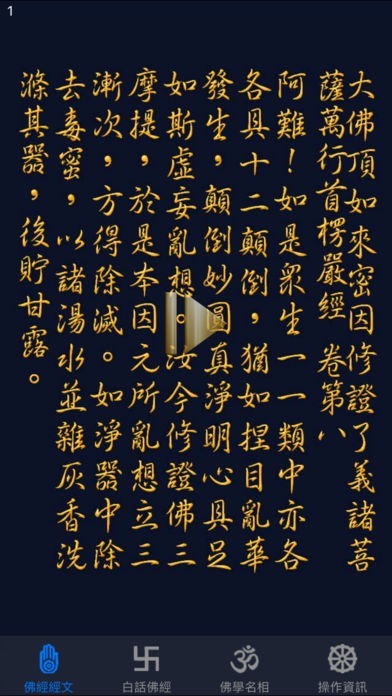 1
大佛頂如來密因修證了義諸菩
薩萬行首楞嚴經 卷第八
阿難！如是眾生一一類中亦各
各具十二顛倒，猶如捏目亂華
發生，顛倒妙圓真淨明心具足
如斯虛妄亂想。汝今修證佛三
摩提，於是本因元所亂想立三
漸次，方得除滅。如淨器中除
去毒蜜，以諸湯水並雜灰香洗
滌其器，後貯甘露。
佛經經文
白話佛經
佛學名相
操作資訊